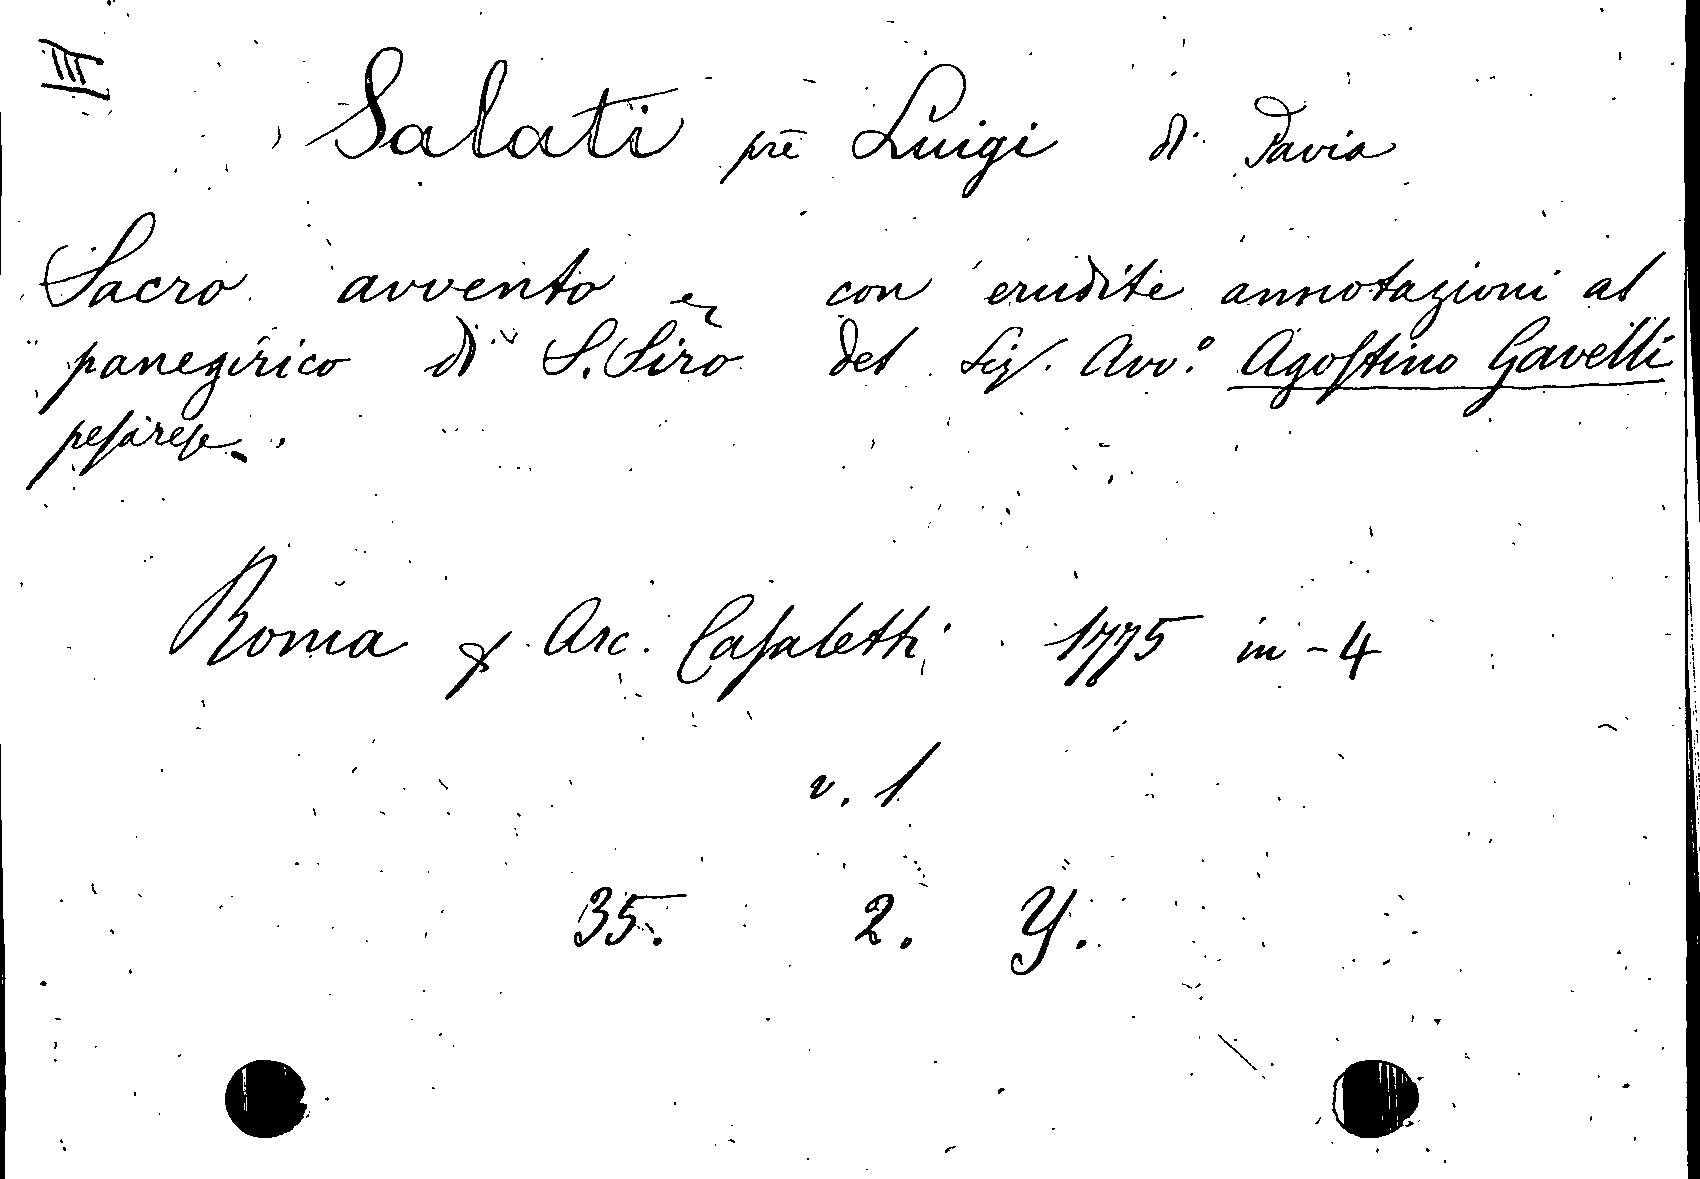 III
Salati prē Luigi di Pavia
Sacro avvento con erudite annotazioni al
panegirico di S. Siro del Sig. Avv.º Agostino Gavelli
pesarese.
Roma Arc. Casaletti 1775 in-4
v. 1
35. 2. Y.